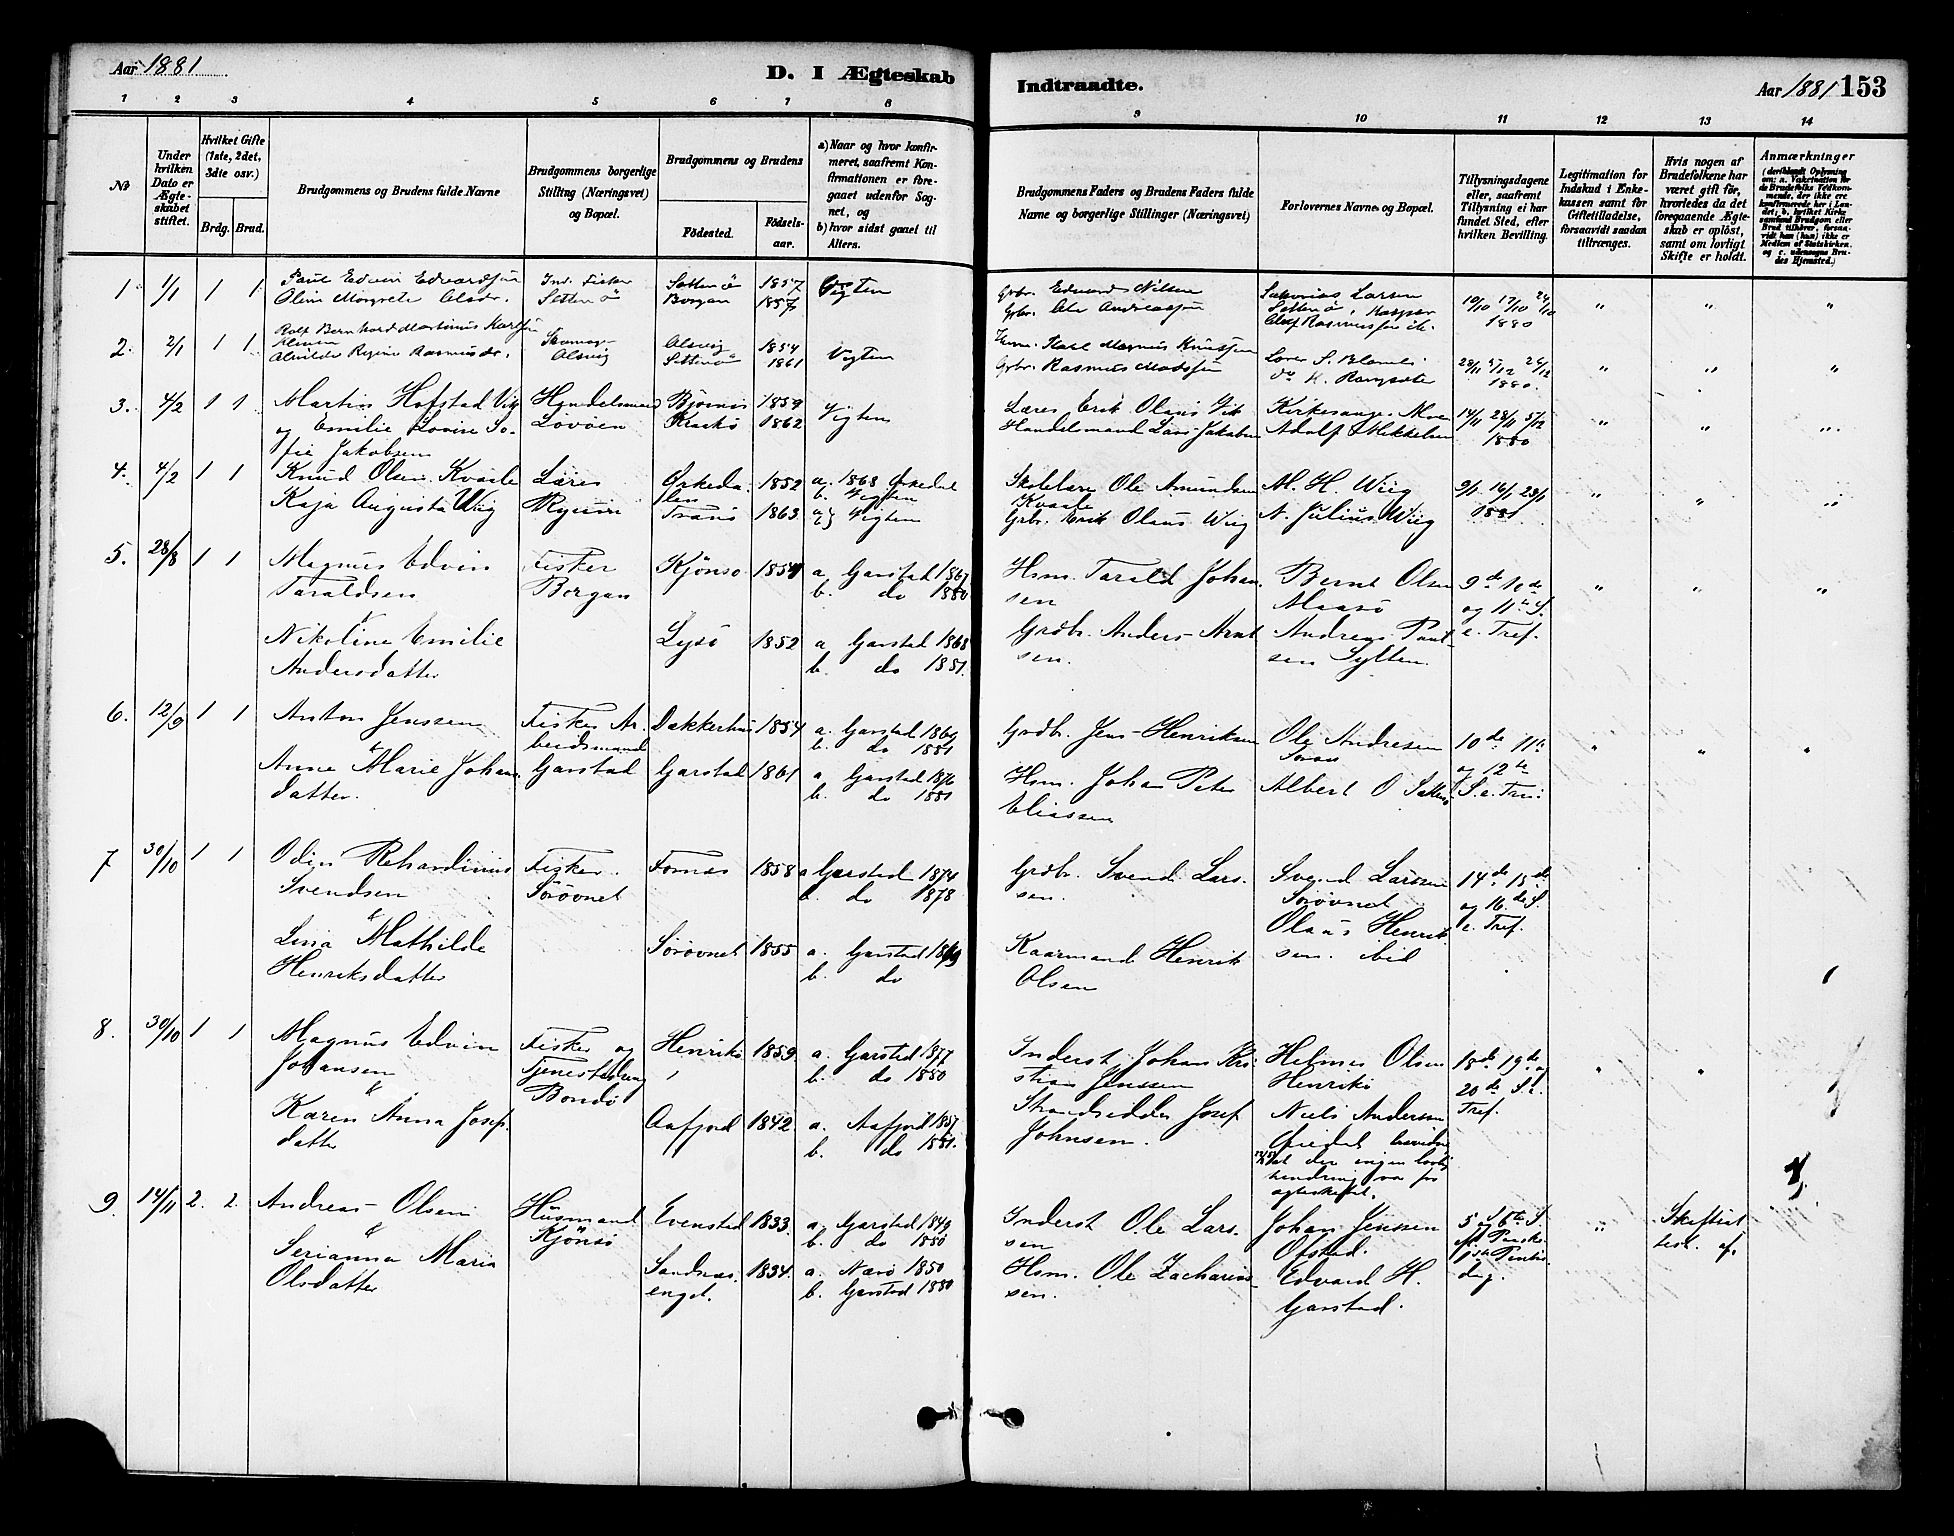 Aar 1881
D. I Ægteskab
Indtraadte.
Aar 1881 153
1 2 3 4 5 6 7 8 9 10 11 12 13 14
No
Under hvilken Dato er Ægteskabet stiftet.
Hvilket Gifte (1ste, 2det, 3die osv.)
Brdg. Brud.
Brudgommens og Brudens fulde Navne
Brudgommens borgerlige Stilling (Næringsvei) og Bopæl.
Brudgommens og Brudens
Fødested.
Fødselsaar.
a) Naar og hvor konfirmeret, saafremt Konfirmationen er foregaaet udenfor Sognet, og
b) hvor sidst gaaet til Alters.
Brudgommens Faders og Brudens Faders fulde Navne og borgerlige Stillinger (Næringsvei)
Forlovernes Navne og Bopæl.
Tillysningsdagene eller, saafremt Tillysning ei har fundet Sted, efter hvilken Bevilling.
Legitimation for Indskud i Enkekassen samt for Giftetilladelse, forsaavidt saadan tiltrænges.
Hvis nogen af Brudefolkene har været gift før, hvorledes da det foregaaende Ægteskab er opløst, samt om lovligt Skifte er holdt.
Anmærkninger
1. 1/1 1 1 Paul Edvin Edvardsen Ind. Fisker Sættenø 1857 Vigten Grbr. Edvard Nilsen Larsen 10/10 17/10 24/10
Oline Margrete Olsdr. Sættenø Borgan 1857 Grbr. Ole Andreassen 1880
2. 2/1 1 1 Rolf Bernhard Martinus Karlsen Alsvig 1854 Vigten Karl Magnus Knutsen 28/11 5/12 26/12
Alvilde Regine Rasmusdr. Alsvig Sættenø 1861 Grbr. Rasmus Madssen 1880.
3. 4/2 1 1 Martin Hofstad Vig Handelsmand Bjørnø 1859 Vigten Lærer Erik Olaus Vik Kirkesanger Moe 14/11 28/11 5/12
og Emilie Lovise So- Løvøen 1862 Handelsmand Lars Jakobsen Adolf Mikkelsen 1880
fie Jakobsen
4. 4/2 1 1 Knud Olsen Kvaale Lærer Ørkeda- 1852 a. 1868 Ørkedal Skolelærer Ole Amundsen M. H. Wiig 9/1 16/1 23/1
len b. Vigten Kvaale
Kaja Augusta Wiig 1863. Vigten Grbr. Erik Olaus Wiig N. Julius Wiig 1881
5. 28/8 1 1 Magnus Edvin Fisker Kjønsø 1854 a. Garstad 1867 Hsm. Tarald Johan- Bernt Olsen 9de 10de
Taraldsen Borgan b. do 1880 sen Alaasø og 11te S.
&
Nikoline Emilie Lysø 1852 a. Garstad 1868 Grdbr. Anders Arnt- Andreas Paul- e. Tref.
Andersdatter b. do 1881. sen. sen Sylten.
6. 12/9 1 1 Anton Jenssen Fisker Ar- Dakkerhus 1854 a. Garstad 1869 Grdb. Jens Henriksen Ole Andresen 10de 11te
& beidsmand b. do 1881 og 12te
Anne Marie Johan- Garstad Garstad 1861 a. Garstad 1876 Hsm. Johan Peter Albert O S.e. Tref.
datter. b. do 1881 Eliassen
7 30/10 1 1 Odin Rehardinus Fisker Fornæs 1858 a Garstad 1874 Grdb. Svend Lars- Svend Larssen 14de 15de
Svendsen Sørøvnet b. do 1878 sen. Sørøvnet og 16de S.
&
Lina Mathilde Sørøvnet 1855 a. Garstad 1869 Kaarmand Henrik Olaus Henrik- e. Tref.
Henriksdatter b. do Olsen sen. ibid
8. 30/10 1 1 Magnus Edvin Fisker og Henrikø 1859 a. Garstad 1877 Inderst Johan Kri- Helmer Olsen 18de 19de og
Johansen Tjenestedreng b. do 1880 stian Jenssen Henrikø 20de S. e.
& Bondø
Karen Anna Josef- Aafjord 1842. a. Aafjord 1857 Strandsidder Josef Niels Andersen Tref.
datter b. do 1881. Johnsen.
at der ingen
hindring var for
ægteskabet.
9. 14/11 2. 2. Andreas Olsen Husmand Evenstad 1833. a. Garstad 1849 Inderst Ole Lars- Johan Jenssen 5 og 6te S. Skiftiat-
& Kjønsø b. do 1880 sen Ofstad. test. af.
Serianna Maria Sandnæs- 1834. a. Nærø 1850 Hsm. Ole Zacharias- Edvard H.
Olsdatter enget. b. Garstad 1880 sen. Garstad.